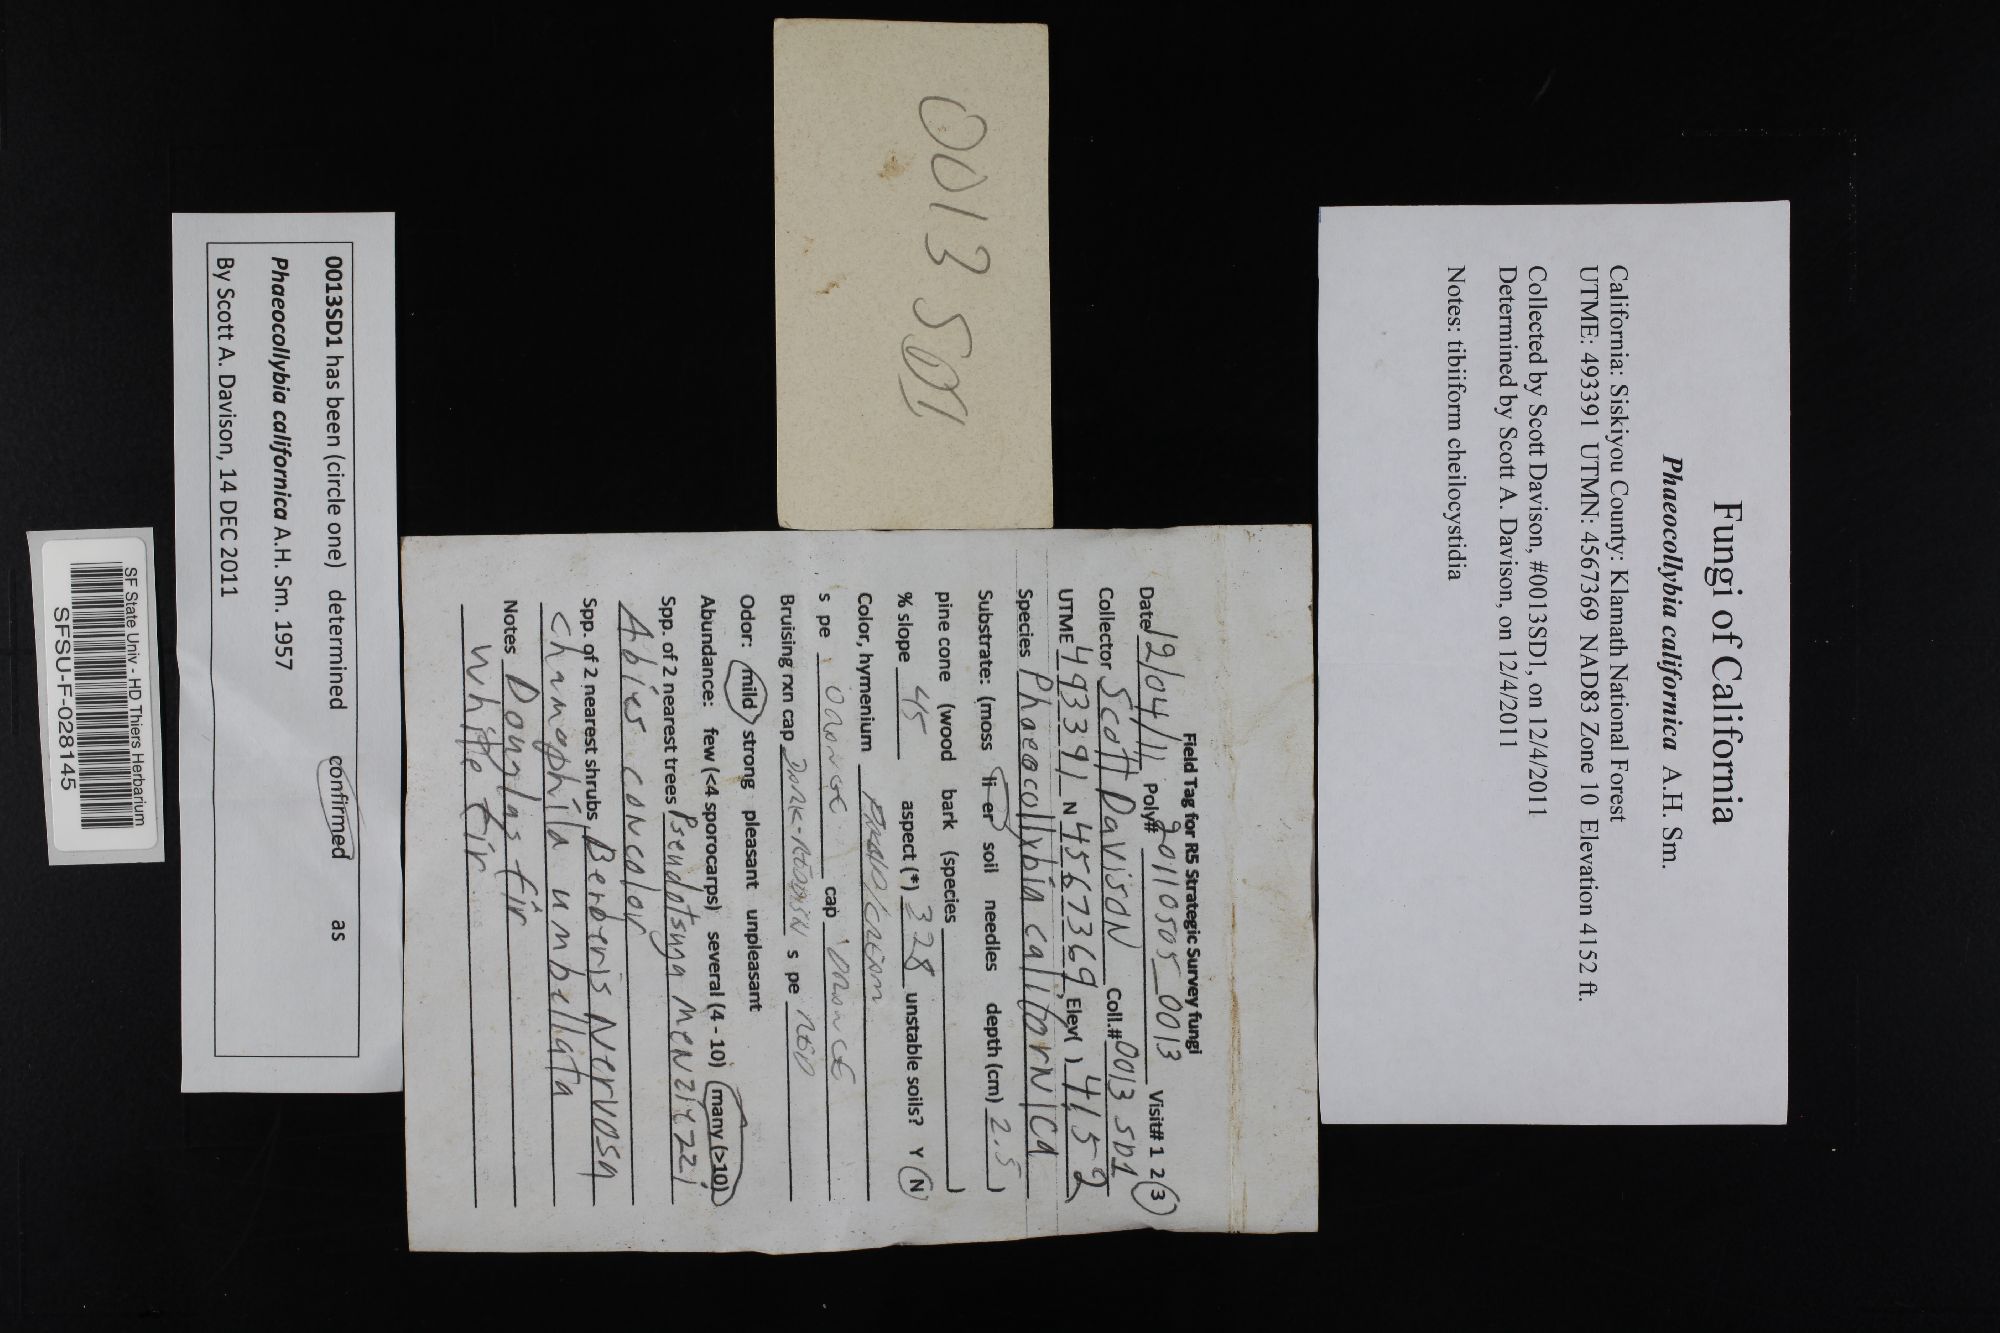 Fungi of California
Phaeocollybia californica A.H. Sm.
California: Siskiyou County: Klamath National Forest
UTME: 493391 UTMN: 4567369 NAD83 Zone 10 Elevation 4152 ft.
Collected by Scott Davison, #0013SD1, on 12/4/2011
Determined by Scott A. Davison, on 12/4/2011
Notes: tibiiform cheilocystidia
0013 SD1
Field Tag for R5 Strategic Survey fungi
Date 12/04/11 Poly# 20110505_0013 Visit# 1 2 3
Collector Scott Davison Coll.# 0013 SD1
UTME 493391 N 4567369 Elev( ) 4152
Species Phaeocollybia californica
Substrate: (moss li er soil needles depth (cm) 2.5 )
pine cone (wood bark (species )
% slope 45 aspect (*) 328 unstable soils? Y N
Color, hymenium /cream
s pe orange cap orange
Bruising rxn cap Dark-reddish s pe red
Odor: mild strong pleasant unpleasant
Abundance: few (<4 sporocarps) several (4 - 10) many (>10)
Spp. of 2 nearest trees Pseudotsuga menziezzi
Abies concolor
Spp. of 2 nearest shrubs Berberis Nervosa
Chamaphila umbellata
Notes Douglas fir
white fir
0013SD1 has been (circle one) determined confirmed as
Phaeocollybia californica A.H. Sm. 1957
By Scott A. Davison, 14 DEC 2011
SF State Univ - HD Thiers Herbarium
SFSU-F-028145